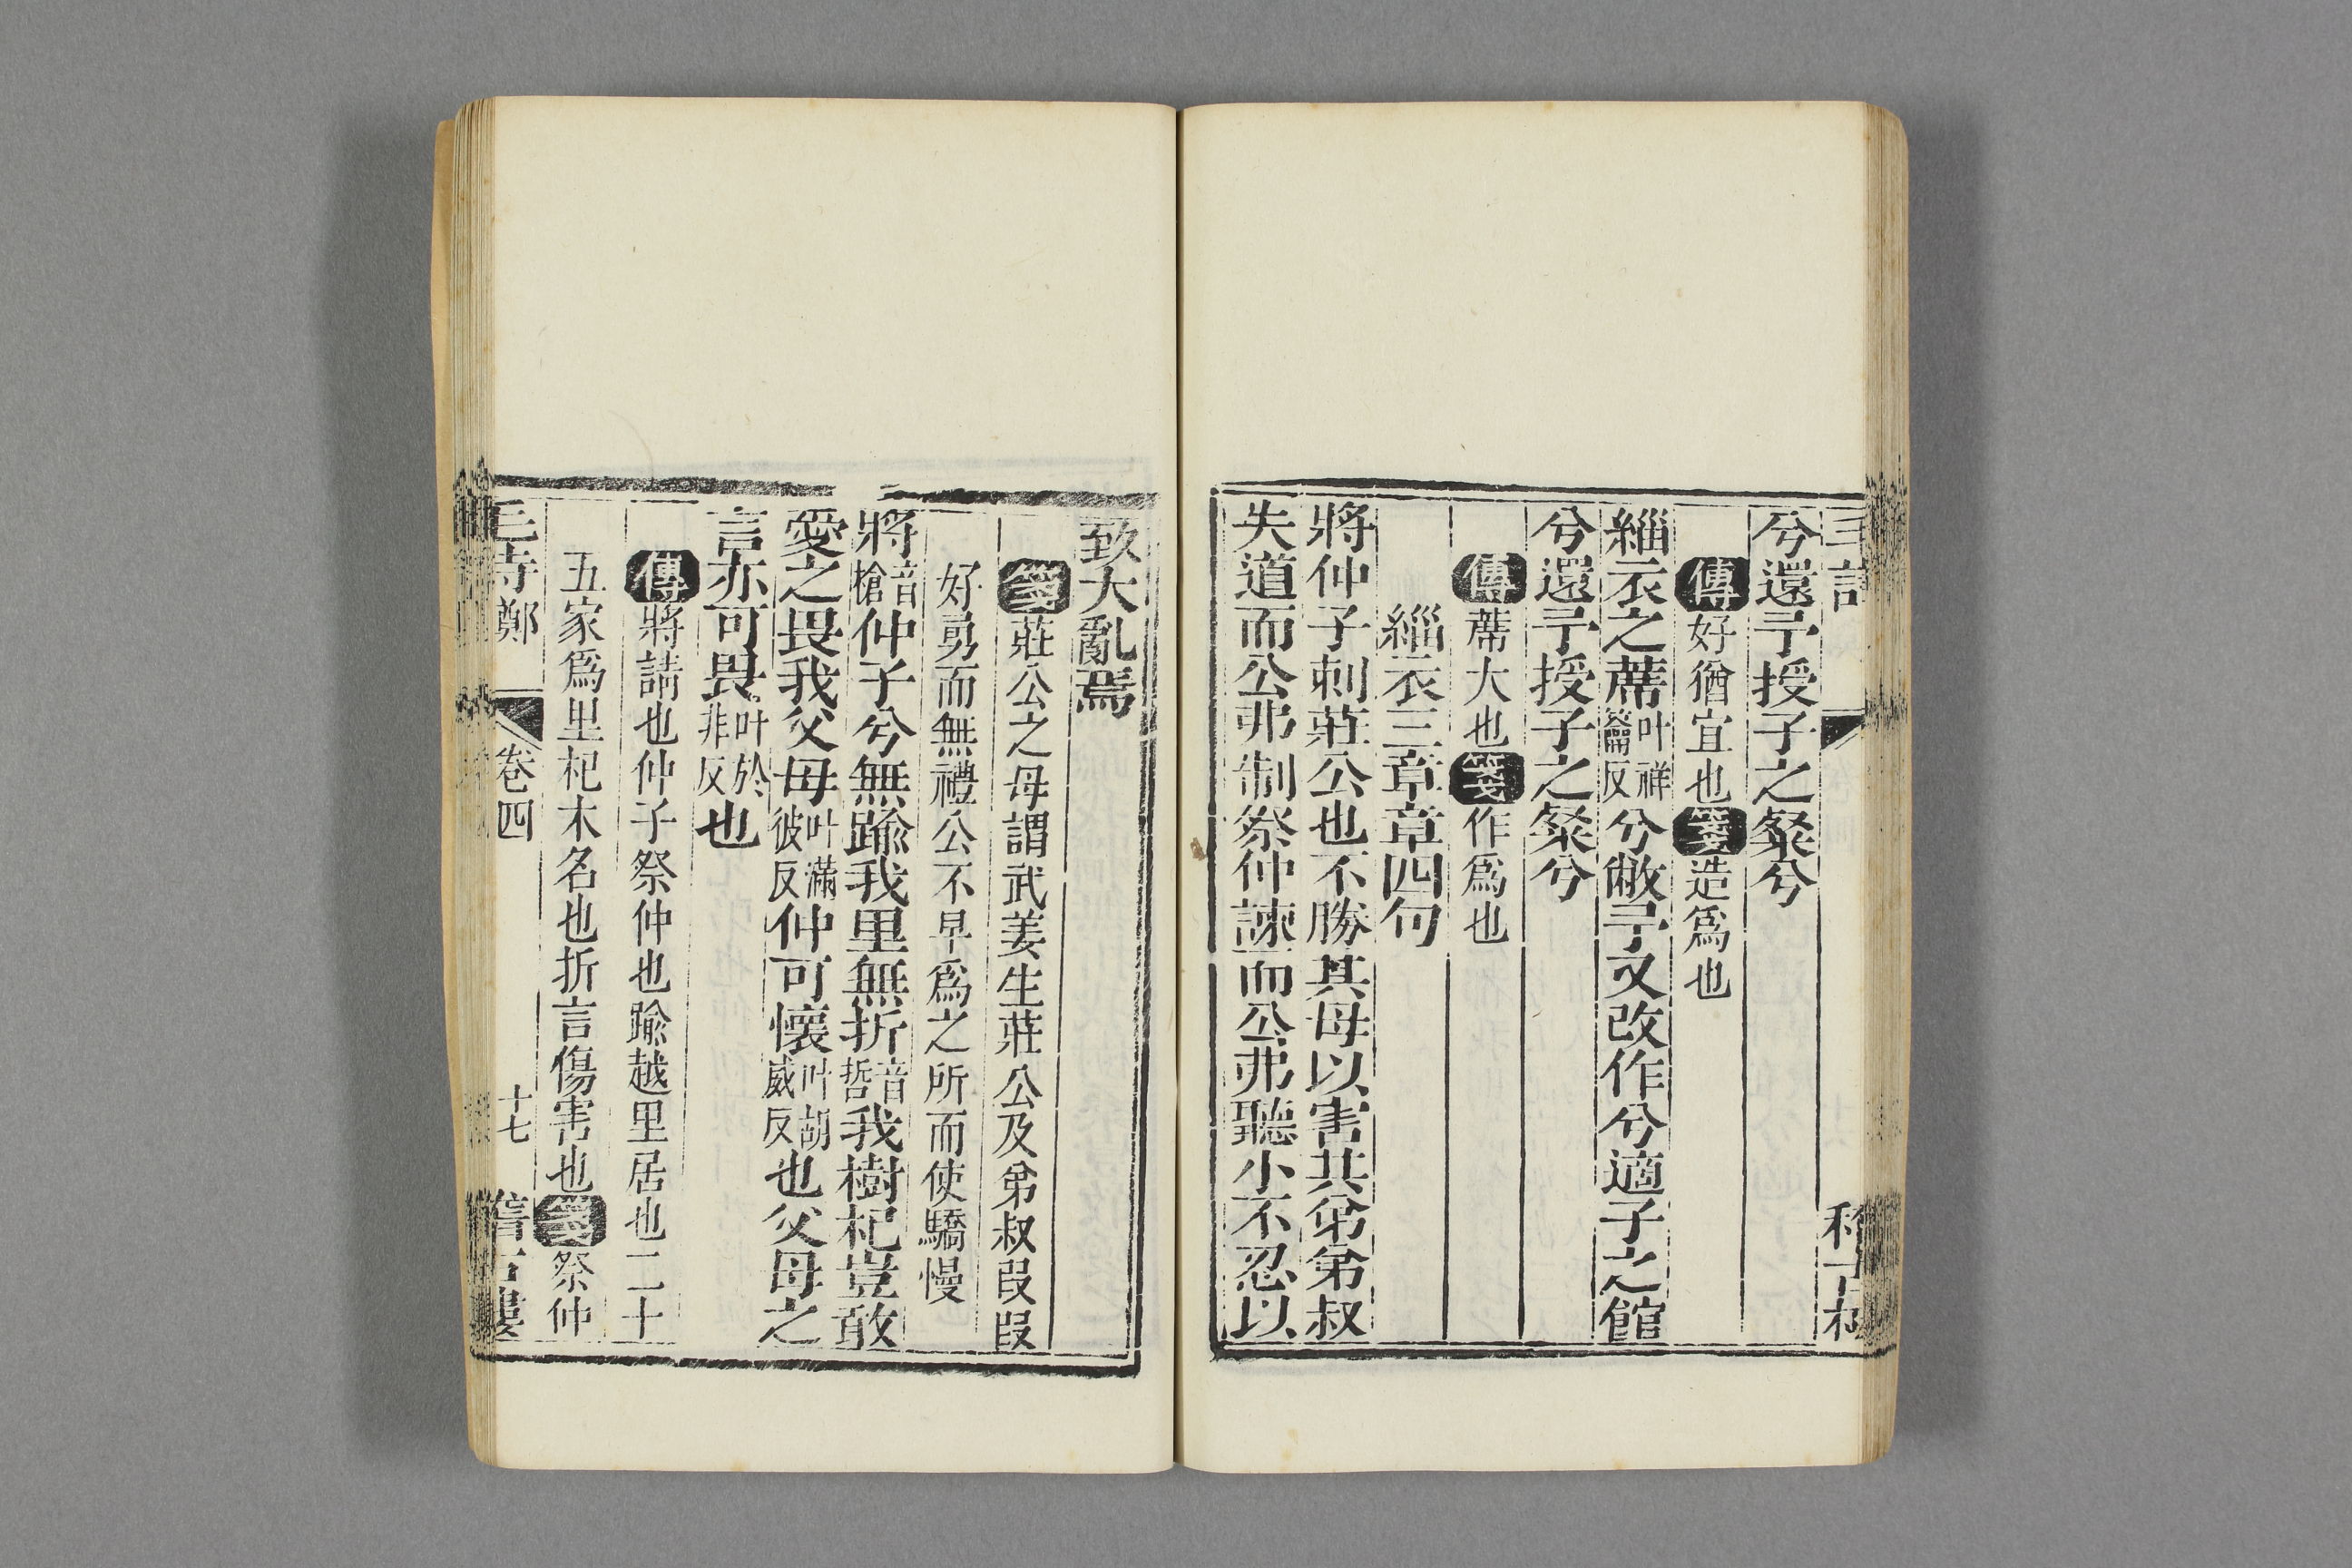 兮還予授子之粲兮
傳好猶宜也箋造爲也
緇衣之蓆叶祥籥反兮敝予又改作兮適子之館
兮還予授子之粲兮
傳蓆大也箋作爲也
緇衣三章章四句
將仲子刺莊公也不勝其母以害其弟弟叔
失道而公弗制祭仲諫而公弗聽小不忍以
致大亂焉
箋莊公之母謂武姜生莊公及弟叔段段
好勇而無禮公不早爲之所而使驕慢
將音槍仲子兮無踰我里無折音哲我樹杞豈敢
愛之畏我父母叶滿彼反仲可懷叶胡威反也父母之
言亦可畏叶於非反也
傳將請也仲子祭仲也踰越里居也二十
五家爲里杞木名也折言傷害也箋祭仲
毛詩鄭 卷四 十七